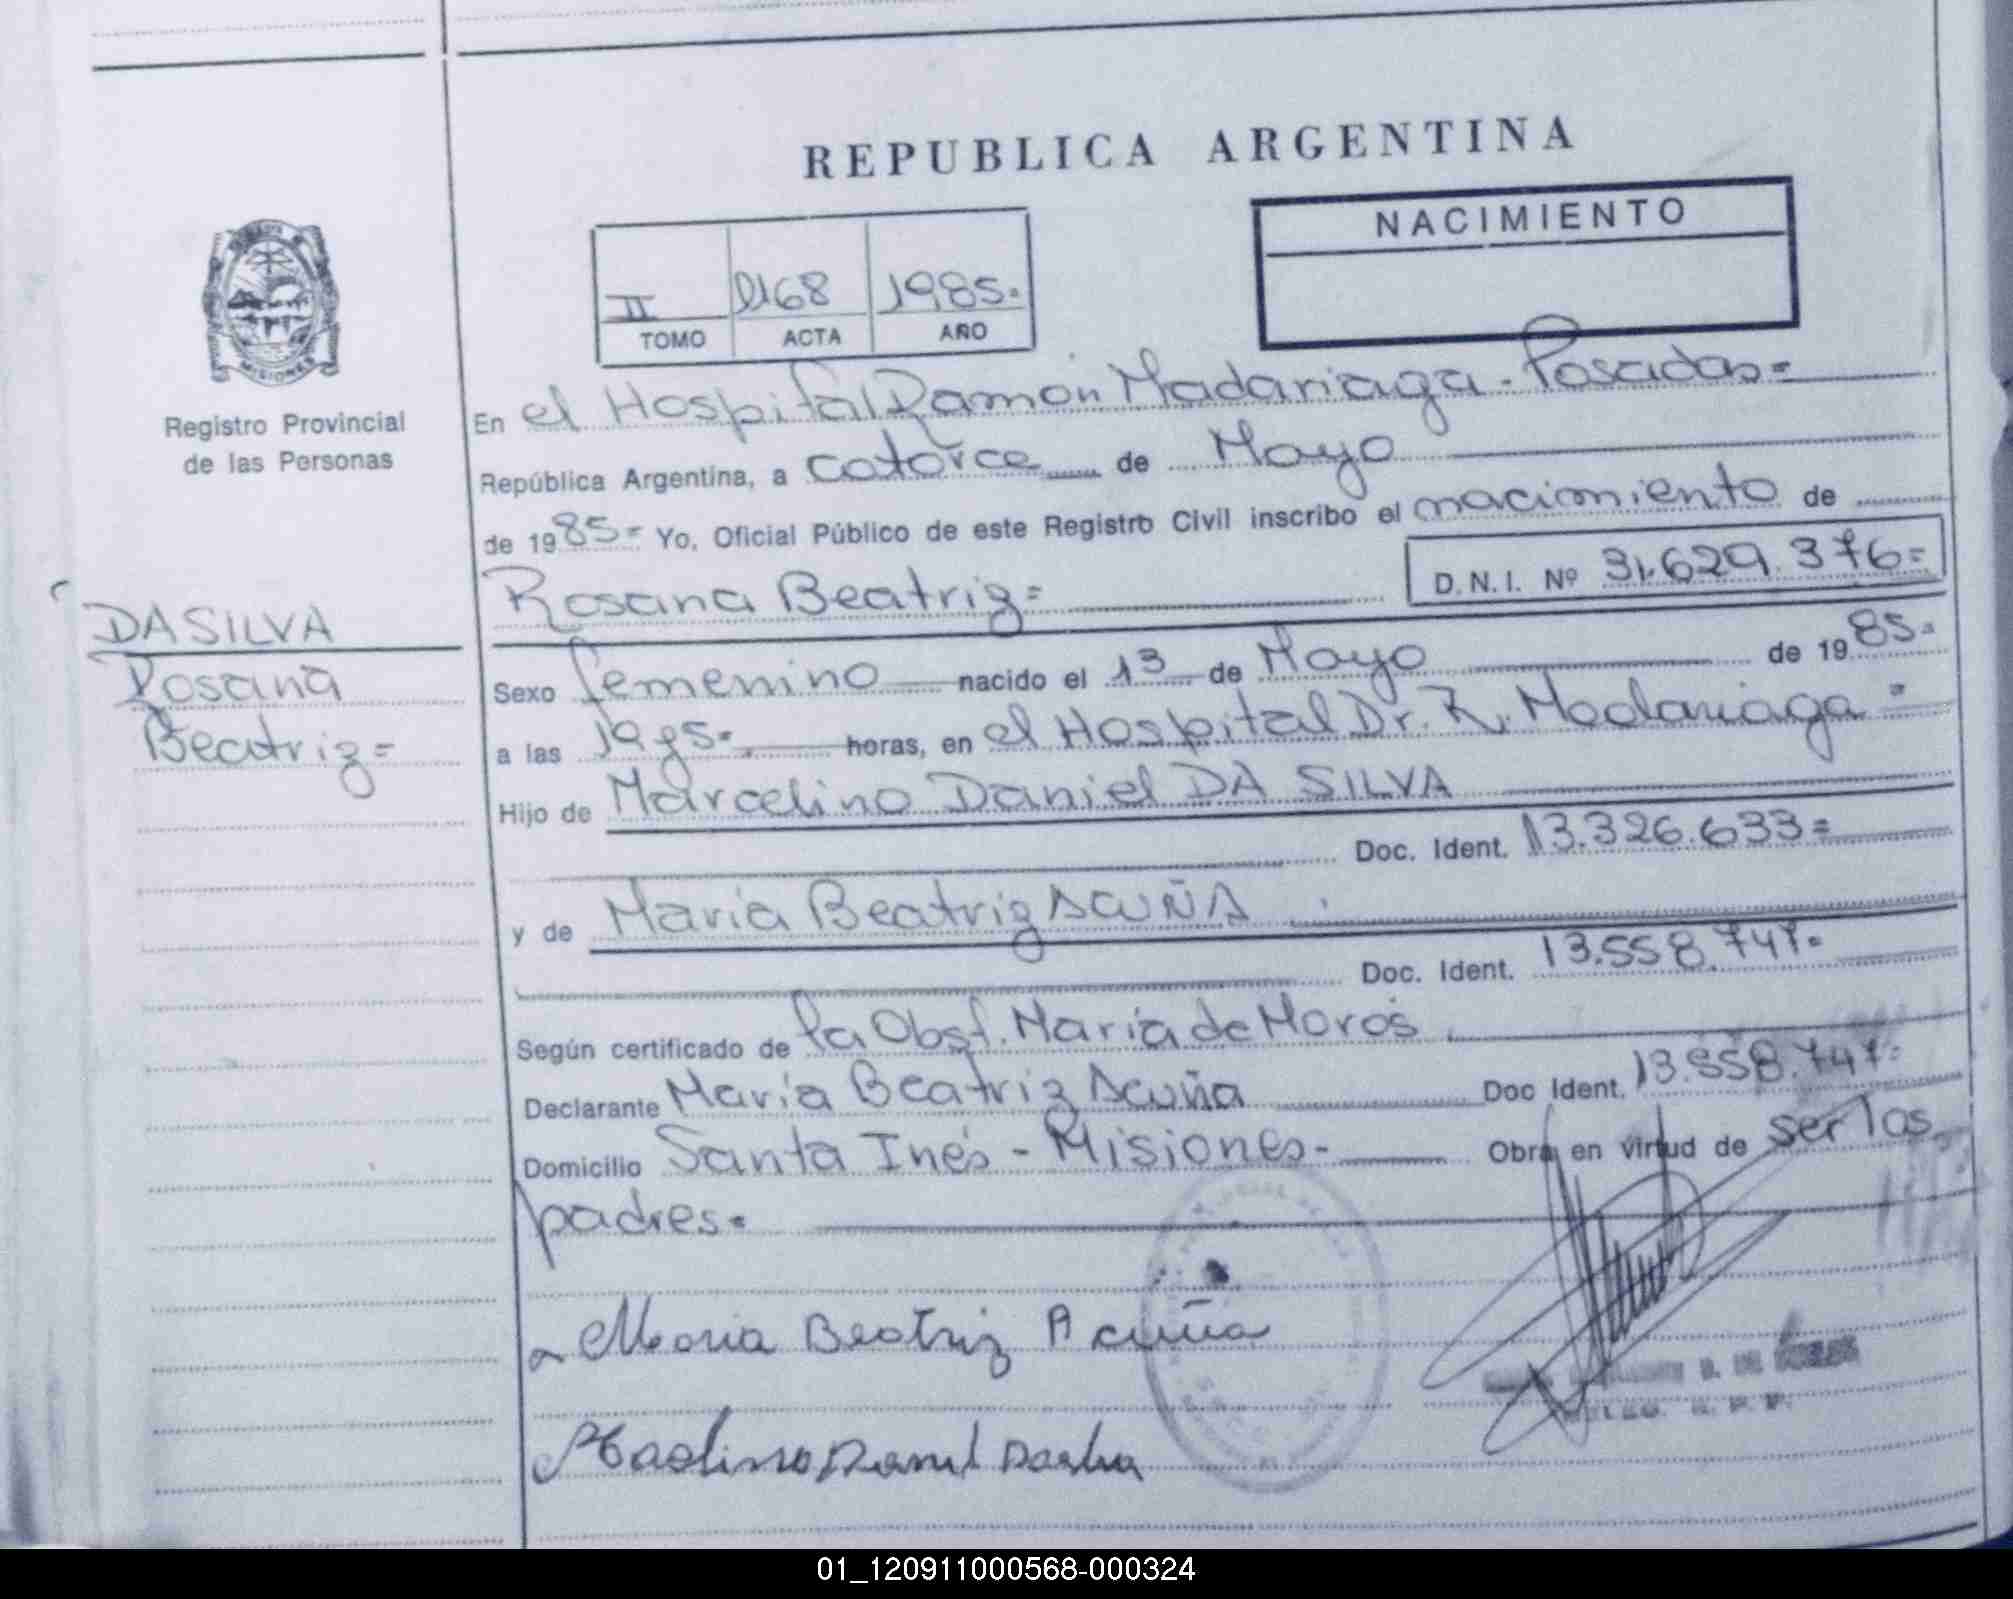 REPUBLICA ARGENTINA
NACIMIENTO
II 1985.=
TOMO ACTA AÑO
MISIONES
Registro Provincial
de las Personas
En el Hospital Ramón Madariaga - Posadas=
República Argentina, a catorce de Mayo
de 1985= Yo, Oficial Público de este Registro Civil inscribo el nacimiento de
Rosana Beatriz= D.N.I. Nº 31.629.376=
DA SILVA
Rosana
Beatriz=
Sexo femenino nacido el 13 de Mayo de 1985.=
a las horas, en el Hospital Dr. R. Madariaga=
Hijo de Marcelino Daniel DA SILVA
Doc. Ident. 13.326.633=
y de María Beatriz ACUÑA
Doc. Ident. 13.558.747.=
Según certificado de la Obst. María de Moros
Declarante María Beatriz Acuña Doc Ident. 13.558.747=
Domicilio Santa Inés - Misiones- Obra en virtud de ser los
padres.=
Maria Beatriz Acuña
Daniel
01_120911000568-000324